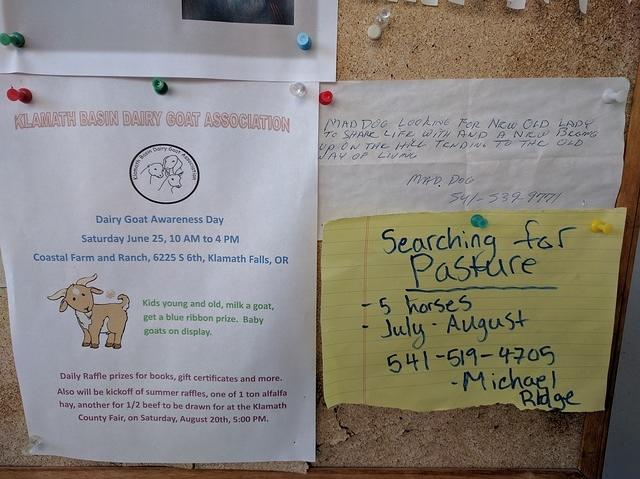 KLAMATH BASIN DAIRY GOAT ASSOCIATION
Klamath Basin Dairy Goat Association
Dairy Goat Awareness Day
Saturday June 25, 10 AM to 4 PM
Coastal Farm and Ranch, 6225 S 6th, Klamath Falls, OR
Kids young and old, milk a goat,
get a blue ribbon prize. Baby
goats on display.
Daily Raffle prizes for books, gift certificates and more.
Also will be kickoff of summer raffles, one of 1 ton alfalfa
hay, another for 1/2 beef to be drawn for at the Klamath
County Fair, on Saturday, August 20th, 5:00 PM.
MAD DOG LOOKING FOR NEW OLD LADY
TO SHARE LIFE WITH AND A NEW
UP ON THE HILL TENDING TO THE OLD
WAY OF LIVING
MAD. DOG
541-539-9771
Searching for
Pasture
- 5 horses
- July - August
541-519-4705
- Michael
Ridge